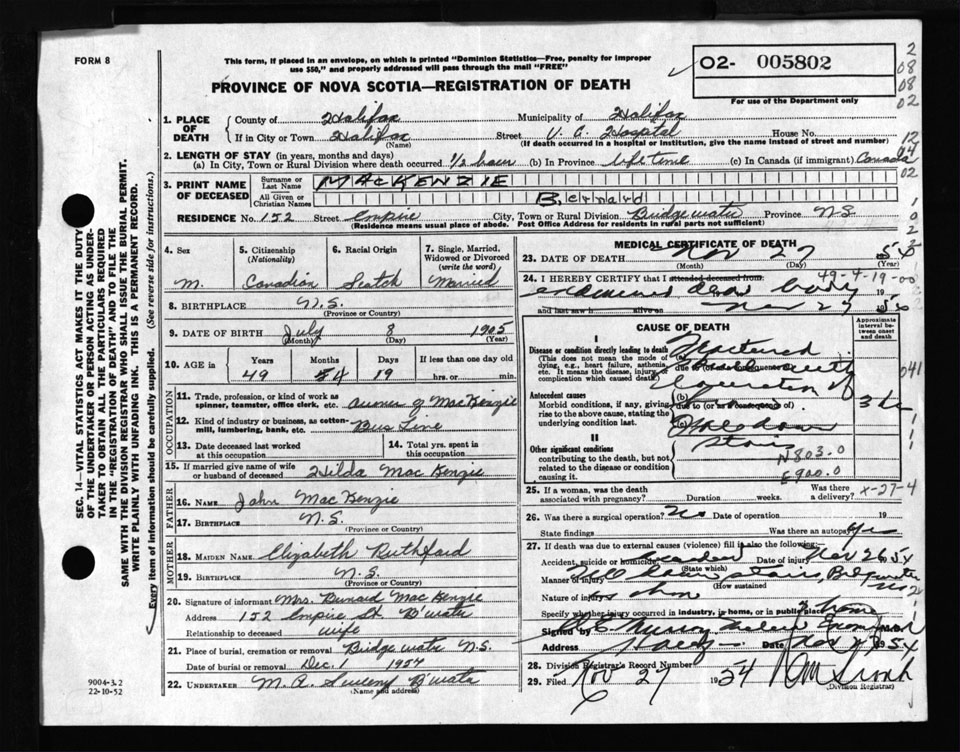 FORM 8
This form, if placed in an envelope, on which is printed "Dominion Statistics—Free, penalty for improper
use $50," and properly addressed will pass through the mail "FREE"
PROVINCE OF NOVA SCOTIA—REGISTRATION OF DEATH
02- 005802
For use of the Department only
2
08
08
02
12
04
02
1. PLACE OF DEATH
County of Halifax Municipality of Halifax
If in City or Town Halifax Street V. G. Hospital House No.
(Name) (If death occurred in a hospital or institution, give the name instead of street and number)
2. LENGTH OF STAY (in years, months and days)
(a) In City, Town or Rural Division where death occurred 1/2 hour (b) In Province lifetime (c) In Canada (if immigrant) Canada
3. PRINT NAME OF DECEASED
Surname or Last Name MACKENZIE
All Given or Christian Names Bernard
RESIDENCE No. 152 Street Empire City, Town or Rural Division Bridgewater Province N.S.
(Residence means usual place of abode. Post Office Address for residents in rural parts not sufficient)
4. Sex M.
5. Citizenship (Nationality) Canadian
6. Racial Origin Scotch
7. Single, Married, Widowed or Divorced (write the word) Married
8. BIRTHPLACE N.S.
(Province or Country)
9. DATE OF BIRTH July 8 1905
(Month) (Day) (Year)
10. AGE in Years Months Days If less than one day old
49 4 19 hrs. or min.
OCCUPATION
11. Trade, profession, or kind of work as
spinner, teamster, office clerk, etc. owner of MacKenzie
12. Kind of industry or business, as cotton-
mill, lumbering, bank, etc. Bus Line
13. Date deceased last worked at this occupation
14. Total yrs. spent in this occupation
15. If married give name of wife
or husband of deceased Hilda MacKenzie
FATHER
16. NAME John MacKenzie
17. BIRTHPLACE N.S.
(Province or Country)
MOTHER
18. MAIDEN NAME Elizabeth Ruthford
19. BIRTHPLACE N.S.
(Province or Country)
20. Signature of informant Mrs. Bernard MacKenzie
Address 152 Empire St. B'water
Relationship to deceased wife
21. Place of burial, cremation or removal Bridgewater N.S.
Date of burial or removal Dec. 1 1954
22. UNDERTAKER M. A. B'water
(Name and address)
MEDICAL CERTIFICATE OF DEATH
23. DATE OF DEATH Nov 27 54
(Month) (Day) (Year)
49-4-19-00
24. I HEREBY CERTIFY that I attended deceased from
examined dead body 19
and last saw alive on Nov 27 54
CAUSE OF DEATH
Approximate interval between onset and death
I
Disease or condition directly leading to death
This does not mean the mode of
dying, e.g., heart failure, asthenia,
etc. It means the disease, injury, or
complication which caused death.
(a)
due to (or as a consequence of)
Antecedent causes
Morbid conditions, if any, giving
rise to the above cause, stating the
underlying condition last.
(b)
due to (or as a consequence of)
II
Other significant conditions
contributing to the death, but not
related to the disease or condition
causing it.
stairs
N803.0
E900.0
041
25. If a woman, was the death
associated with pregnancy? Duration weeks. Was there a delivery? x-27-4
26. Was there a surgical operation? No Date of operation 19
State findings Was there an autopsy? Yes
27. If death was due to external causes (violence) fill in also the following:—
Accident, suicide or homicide Accident Date of injury Nov 26 54
(State which)
Manner of injury Fell down stairs,
(How sustained)
Nature of injury
Specify whether injury occurred in industry, in home, or in public place home
Signed by
Address Date Nov 27 1954
28. Division Registrar's Record Number
29. Filed Nov 27 1954
(Division Registrar)
SEC. 14—VITAL STATISTICS ACT MAKES IT THE DUTY
OF THE UNDERTAKER OR PERSON ACTING AS UNDER-
TAKER TO OBTAIN ALL THE PARTICULARS REQUIRED
IN THE "REGISTRATION OF DEATH" AND TO FILE THE
SAME WITH THE DIVISION REGISTRAR WHO SHALL ISSUE THE BURIAL PERMIT.
WRITE PLAINLY WITH UNFADING INK. THIS IS A PERMANENT RECORD.
Every item of information should be carefully supplied. (See reverse side for instructions.)
9004-3.2
22-10-52